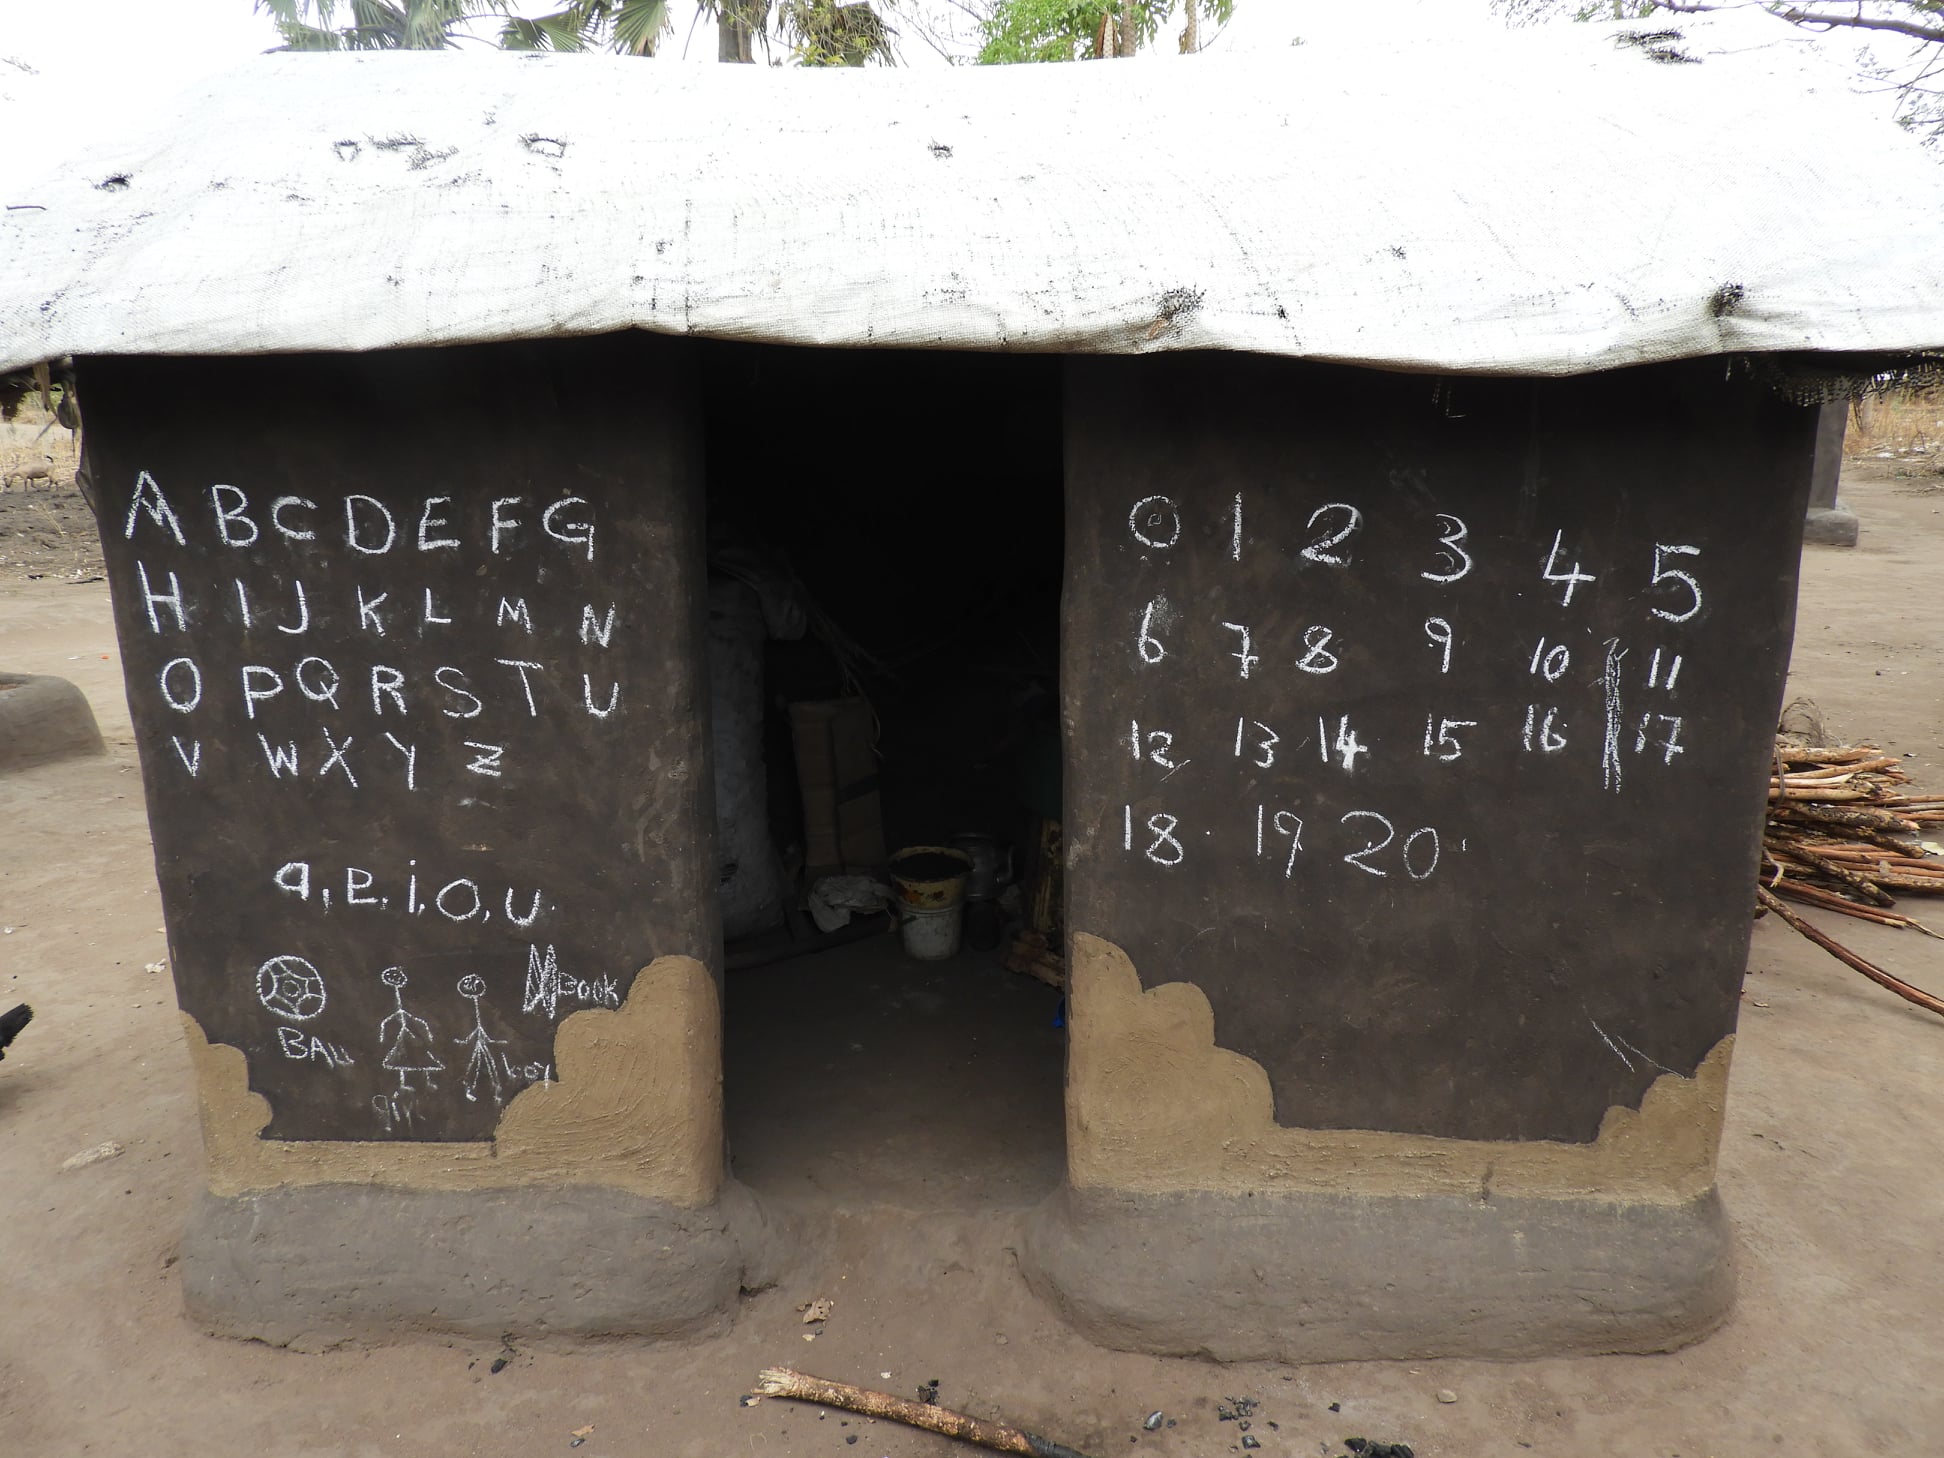 A B C D E F G
H I J K L M N
O P Q R S T U
V W X Y Z
a, e, i, o, u.
Book
BALL
boy
girl
0 1 2 3 4 5
6 7 8 9 10 11
12 13 14 15 16 17
18 19 20